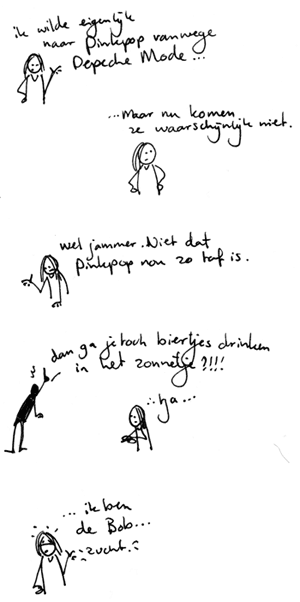 ik wilde eigenlijk
naar Pinkpop vanwege
Depeche Mode...
...Maar nu komen
ze waarschijnlijk niet.
wel jammer. Niet dat
Pinkpop nou zo tof is.
dan ga je toch biertjes drinken
in het zonnetje?!!!
...tja...
... ik ben
de Bob...
zucht.